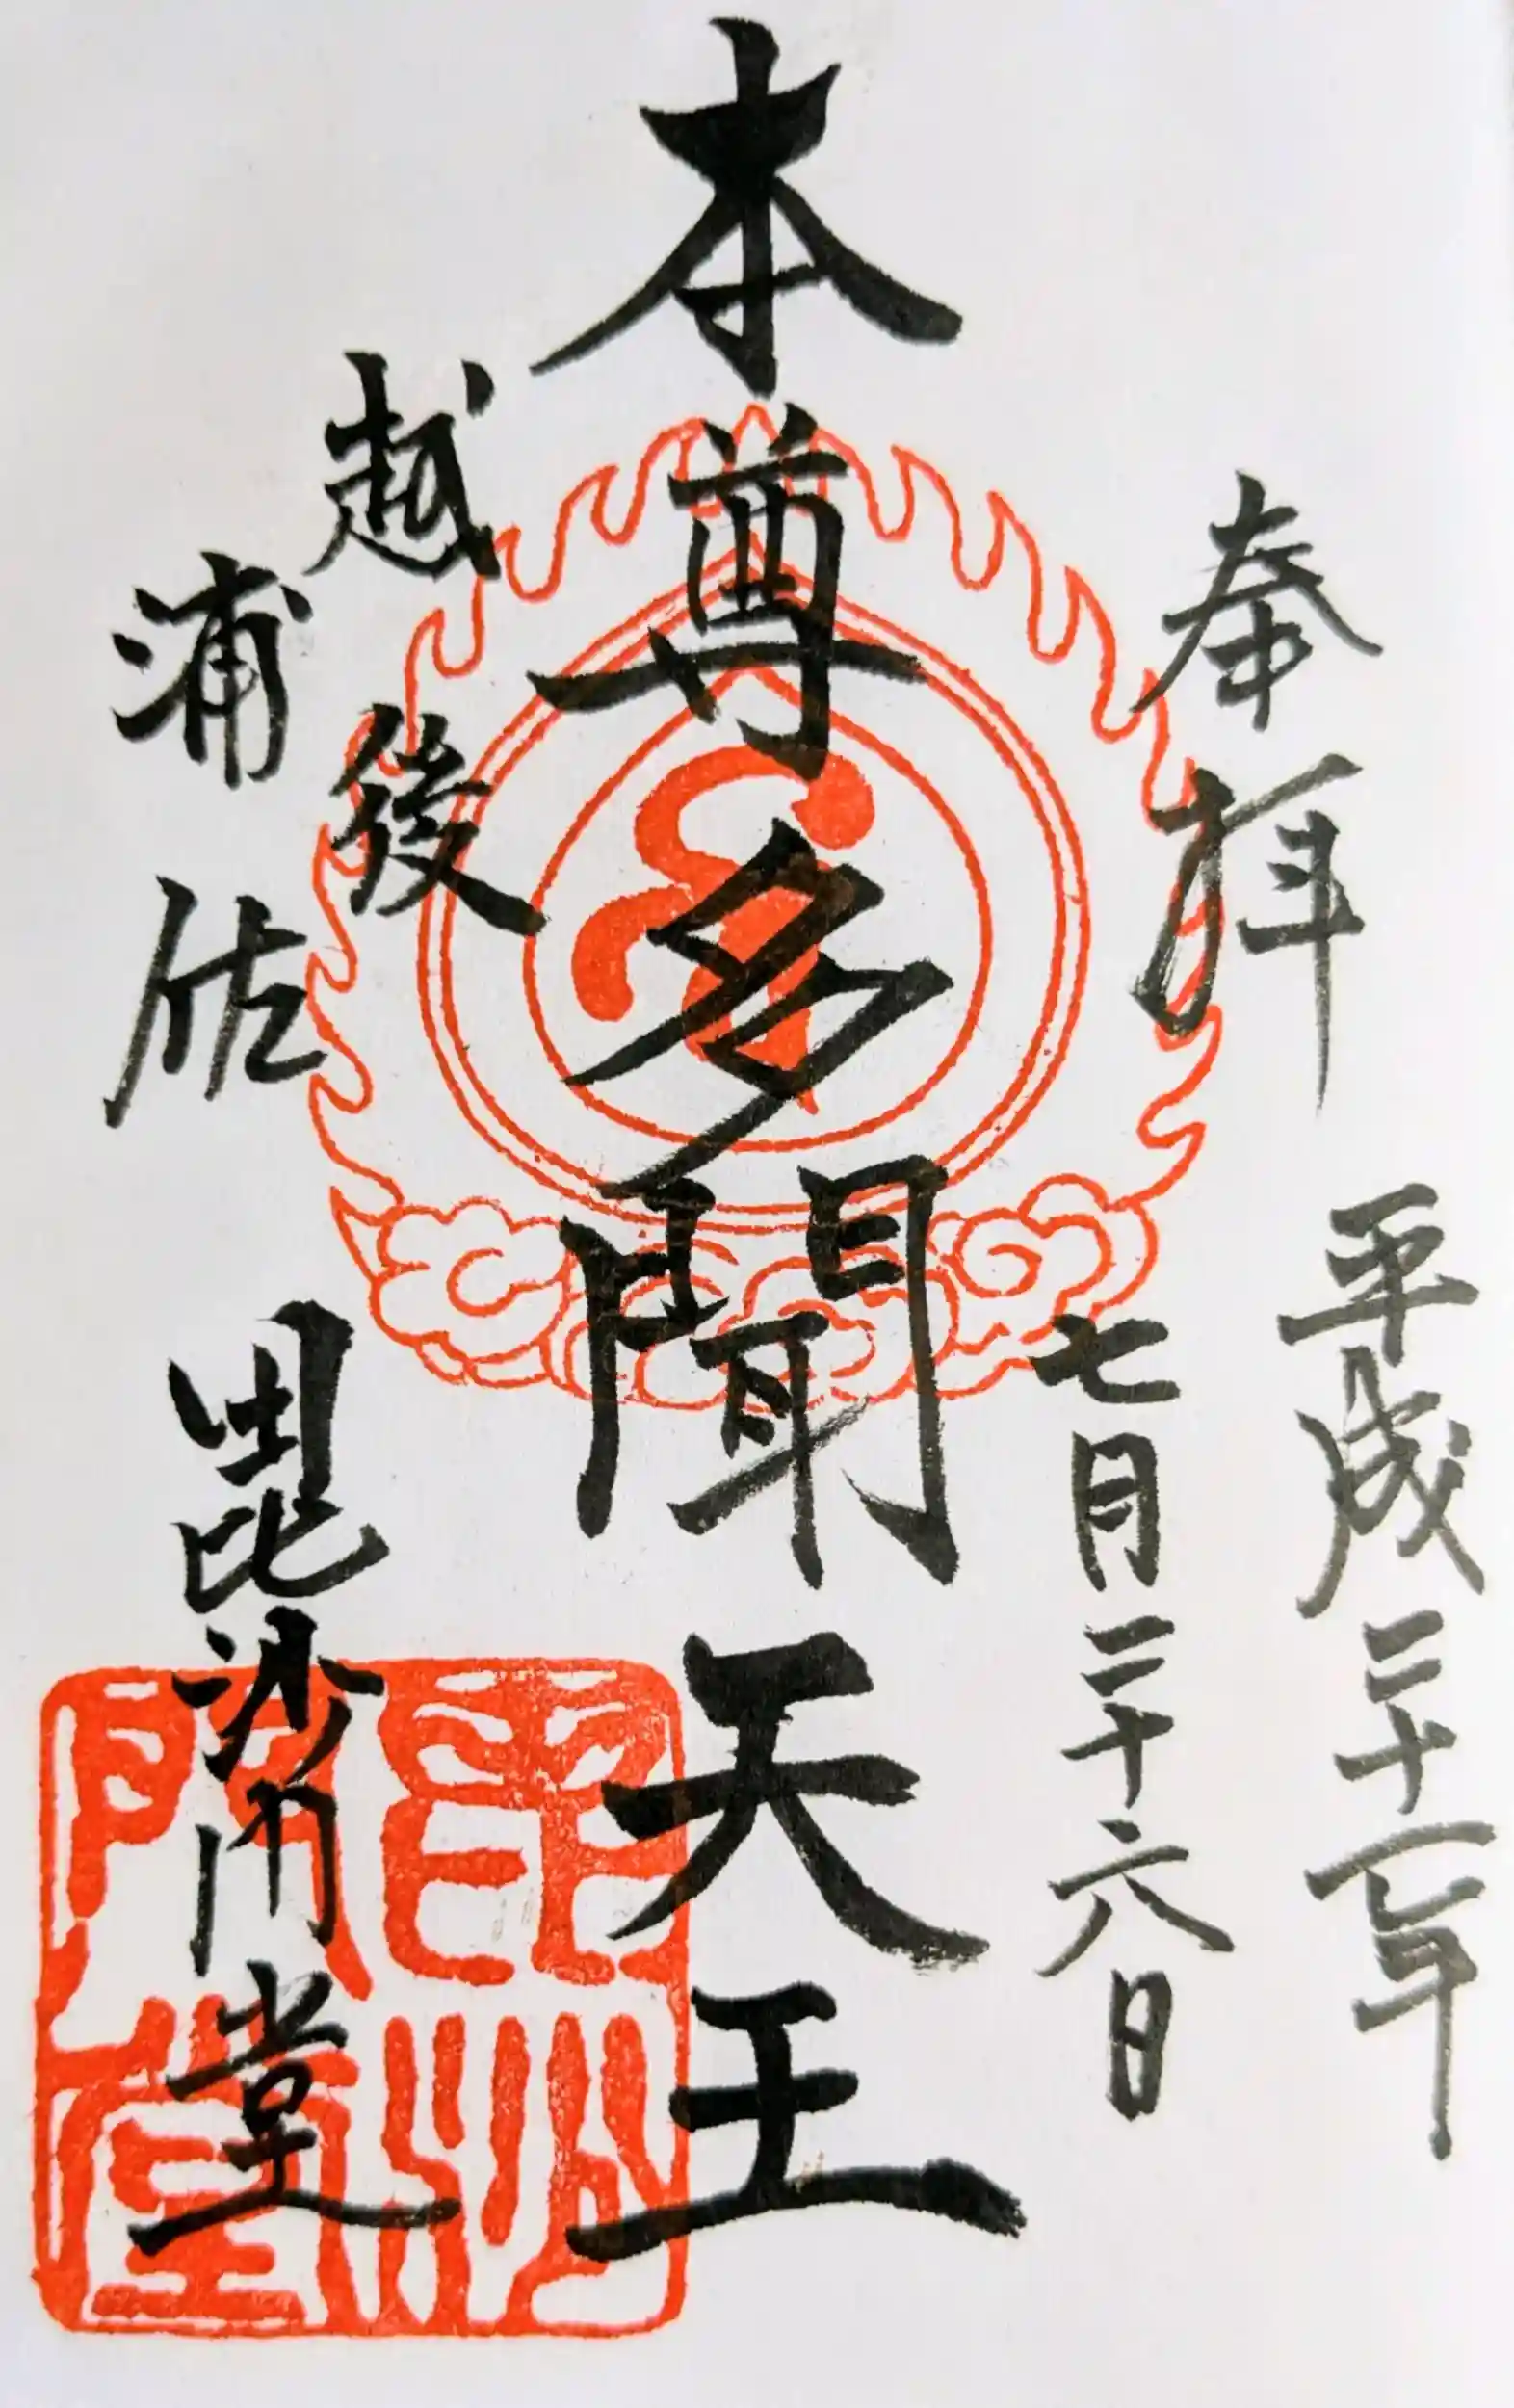 奉拝
平成三十年
七月二十六日
本尊多聞天王
越後
浦佐
毘沙門堂